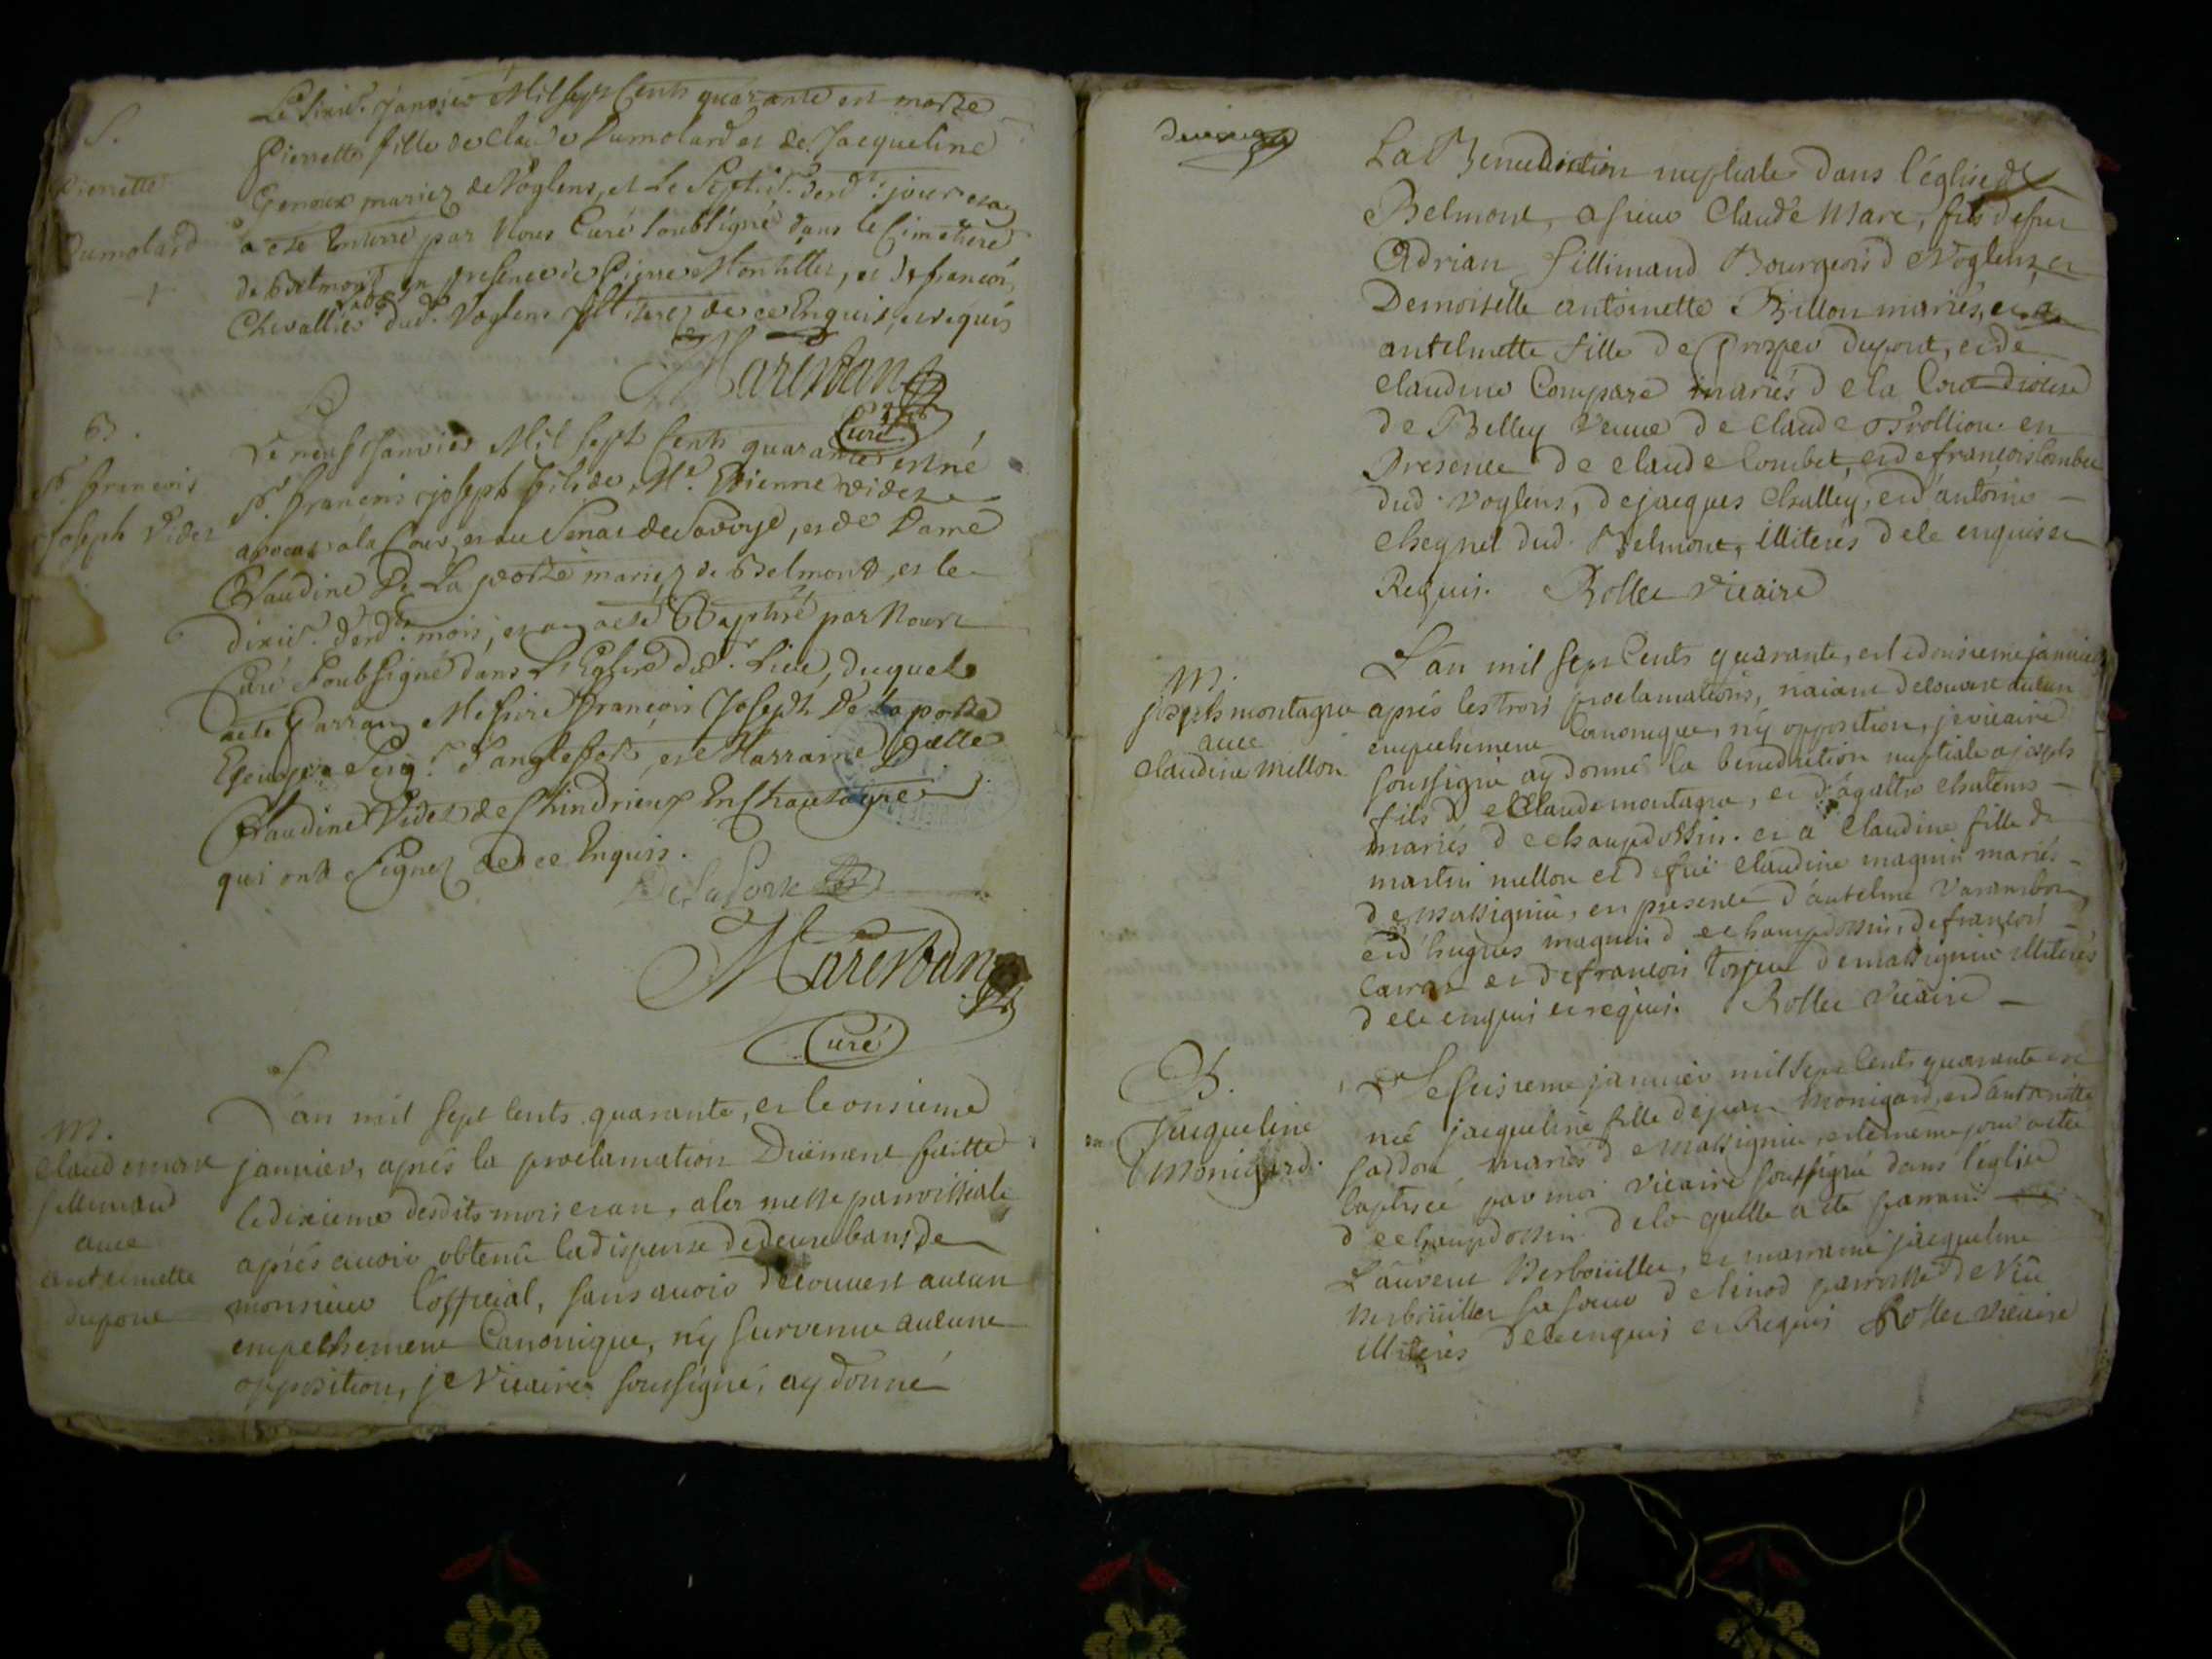 S.
Pierrette
Dumolard
Le sixie. Janvier Mil sept Cents quarante est morte
Pierrette fille de Claude Dumolard et de Jacqueline
Genoux mariez de Voglens, et le Septie. desd. jour et an
a été Enterré par Nous Curé soubsigné dans le Cimetiere
de Belmont en presence de Pierre Montillier, et de francois
Chevallier dud. Voglens illiterez de ce Enquis, et requis
Marestan
Curé
B.
Sr. françois
Joseph Videt
Le neuf Janvier Mil sept Cents quarante est né
Sr. françois joseph fils de Me. Etienne Videt
avocat a la Cour, et au Senat de Savoye, et de Dame
Claudine De La porte mariez de Belmont, et le
dixie. desd. mois, et an a été Baptisé par Nous
Curé Soubsigné dans L'Eglise dud. Lieu, duquel a
été Parrain Messire françois Joseph De Laporte
Seigr. d'anglefort, et Marraine Dlle
Claudine Videt de Chindrieux En Chautagne
qui ont Signez de ce Enquis.
De Laporte
Marestan
Curé
M.
Claude marc
fillimand
avec
antelmette
dupont
L'an mil sept cents quarante, et le onsieme
janvier, aprés la proclamation Duëment faitte
le dixieme desdits mois et an, a la messe parroissiale
aprés avoir obtenû la dispense de deux bans de
monsieur l'official, sans avoir decouvert aucun
empechement Canonique, ny survenu aucune
opposition, je Vicaire soussigné, ay donné
La Benediction nuptiale dans l'église de
Belmont, a sieur Claude Marc, fils de feu
Adrian fillimand Bourgeois de Voglens, et
Demoiselle antoinette Billon mariés, et a
antelmette fille de Prosper dupont, et de
claudine Compare mariés de la Cou diocese
de Belley veuve de Claude Prollion en
Presence de claude Combet, et de françois Combet
dud. Voglens, de jacques Challey, et d'antoine
Chegnel dud. Belmont, illiterés de ce enquis et
Requis. Rosset vicaire
M.
joseph montagna
avec
Claudine mellon
L'an mil sept Cents quarante, et le dousieme janvier
aprés les trois proclamations, n'aiant decouvert aucun
empechement Canonique, ny opposition, je vicaire
soussigné ay donné la benediction nuptiale a joseph
fils de Claude montagna, et d'agathe chatens
mariés de champdossin. et a Claudine fille de
martin mellon et de feüe Claudine magnin mariés
de Massigniu, en presence d'antelme Varambon,
et d'hugues magnin de champdossin, de françois
Carrat et de francois torjeu de massigniu illiterés
de ce enquis et requis. Rosset Vicaire
B.
Jacqueline
Monigard.
Le seisieme janvier mil sept Cents quarante est
neé jacqueline fille de jean Monigard, et d'antoinette
saddou mariés de Massigniu, et le meme jour a etée
baptisée par moi vicaire soussigné dans l'église
de champdossin de la quelle a eté parrain
Laurent Berbouiller, et marraine jacqueline
Berbouiller sa soeur de linod parroisse de Viü
illiterés de ce enquis et Requis Rosset Vicaire